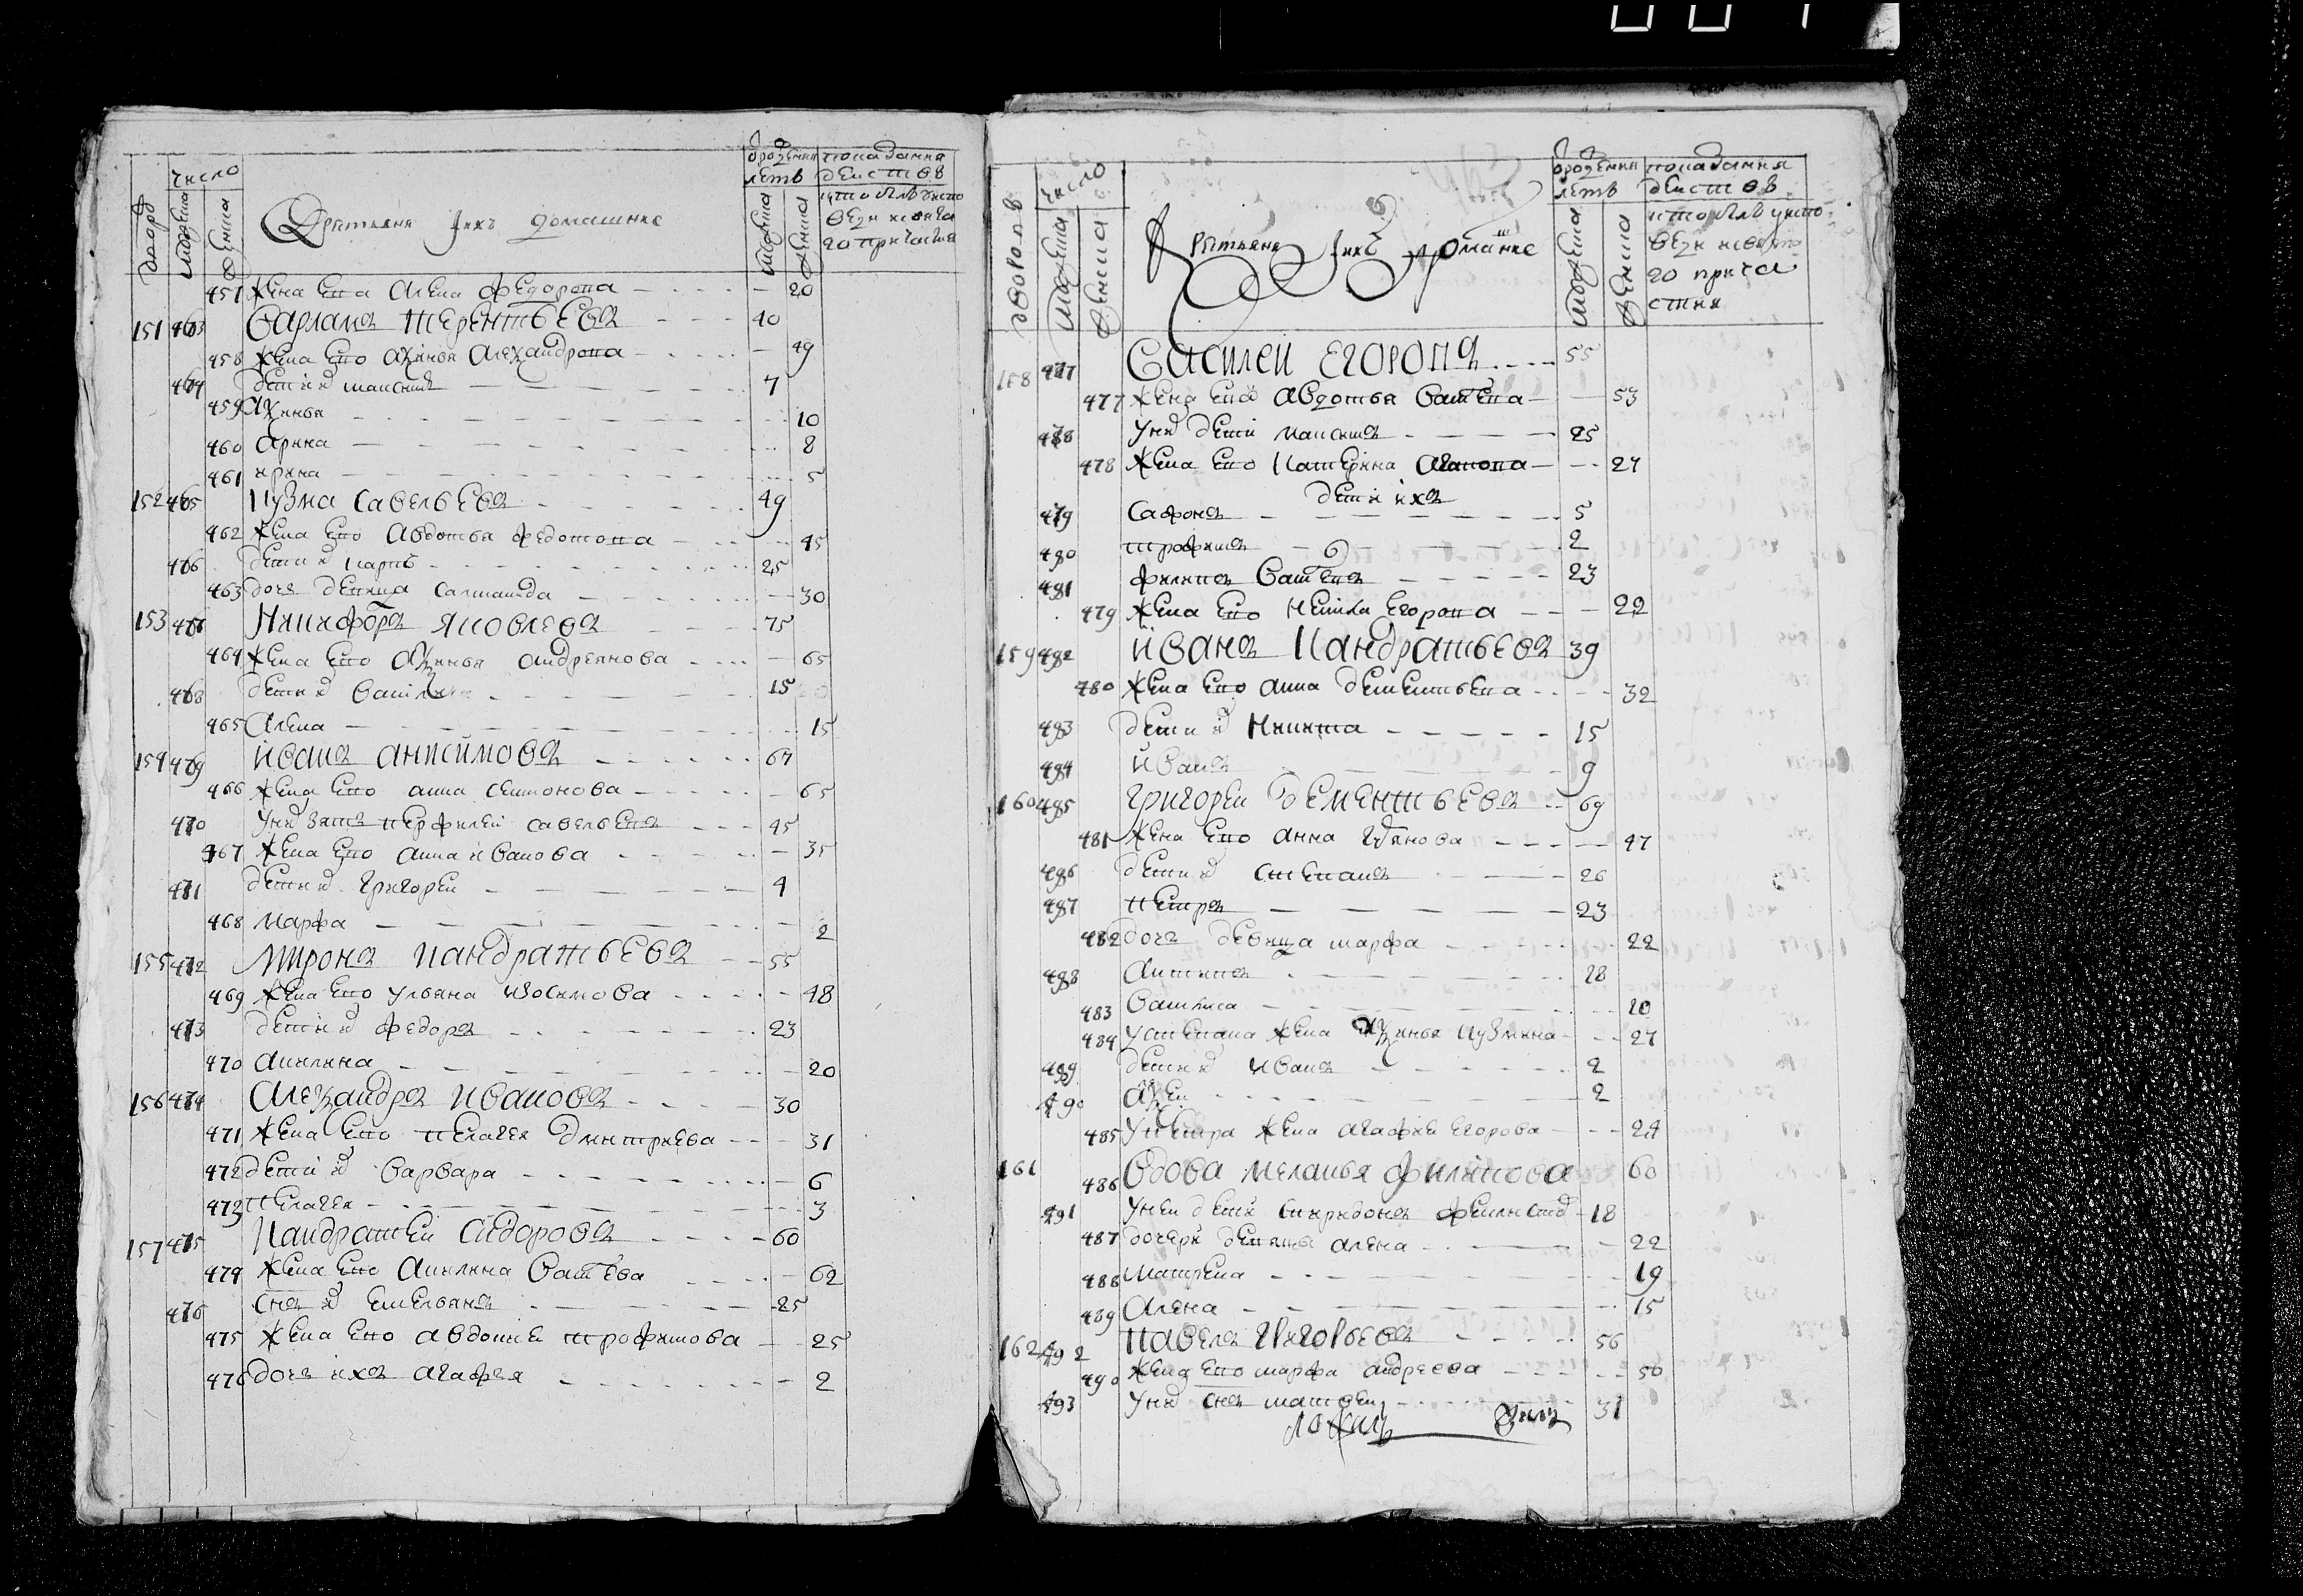 число
дворовъ
мужеска
женска
Крестьяне и ихъ домашние
от рождения летъ
мужеска
женска
показания действъ
кто былъ у исповезди и святаго причастия
457 жена его Алена Федорова 20
151 463 Варламъ Терентьевъ 40
458 жена его Аѯинья Алеѯандрова 49
464 дети ихъ Максимъ 7
459 Аѯинья 10
460 Арина 8
461 ирина 5
152 465 Кузма Савельевъ 49
462 жена его Авдотья Федотова 45
466 дети ихъ Карпъ 25
463 дочь девица 30
153 466 Никифоръ Яковлевъ 75
464 жена его Аѯинья Андреянова 65
468 дети ихъ Василей 15
465 Алена 15
154 469 Иванъ Анисимовъ 67
466 жена его Анна Семионова 65
470 у них зять Перфилей Савельевъ 45
467 жена его Анна Иванова 35
471 дети их Григорей 4
468 Марфа 2
155 472 Миронъ Кандратьевъ 55
469 жена его Ульяна Изосимова 48
473 дети их Федоръ 23
470 Акилина 20
156 474 Алеѯандръ Ивановъ 30
471 жена его Пелагея Дмитриева 31
472 дети их Варвара 6
473 Пелагея 3
157 475 Кандратей Сидоровъ 60
474 жена его Акилина Васильева 62
476 снъ их Емельянъ 25
475 жена его Авдотья Трофимова 25
476 дочь ихъ Агафья 2
число
дворовъ
мужеска
женска
Крестьяне и ихъ домашние
от рождения летъ
мужеска
женска
показания действъ
кто былъ у исповезди и святаго причастия
158 477 Василей Егоровъ 55
477 жена его Авдотья Васильева 53
478 у них дети Максимъ 25
478 жена его Катерина Агапова 27
дети ихъ
479 Сафонъ 5
480 Трофимъ 2
481 Филипъ Васильевъ 23
479 жена его Егорова 22
159 482 Иванъ Кандратьевъ 39
480 жена его Анна Дементьева 32
483 дети их Никита 15
484 Иванъ 9
160 485 Григорей Дементьевъ 69
481 жена его Анна 47
486 дети их Степанъ 26
487 Петръ 23
482 дочь девица Марфа 22
488 Антипъ 18
483 Василиса 10
484 у Степана жена Аѯинья Кузмина 27
489 дети их Иванъ 2
490 2
485 у Петра жена Агафия Егорова 24
161 486 Вдова Меланья Филипова 60
491 у ней дети Спиридонъ 18
487 дочери девицы Алена 22
488 Матрена 19
489 Алена 15
162 492 Павелъ Григорьевъ 56
490 жена его Марфа Андреева 50
493 у них снъ Матвей 31